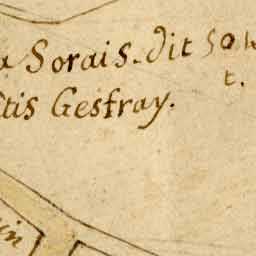 a Sorais. dit 50
t.
tis Gesfray.
in